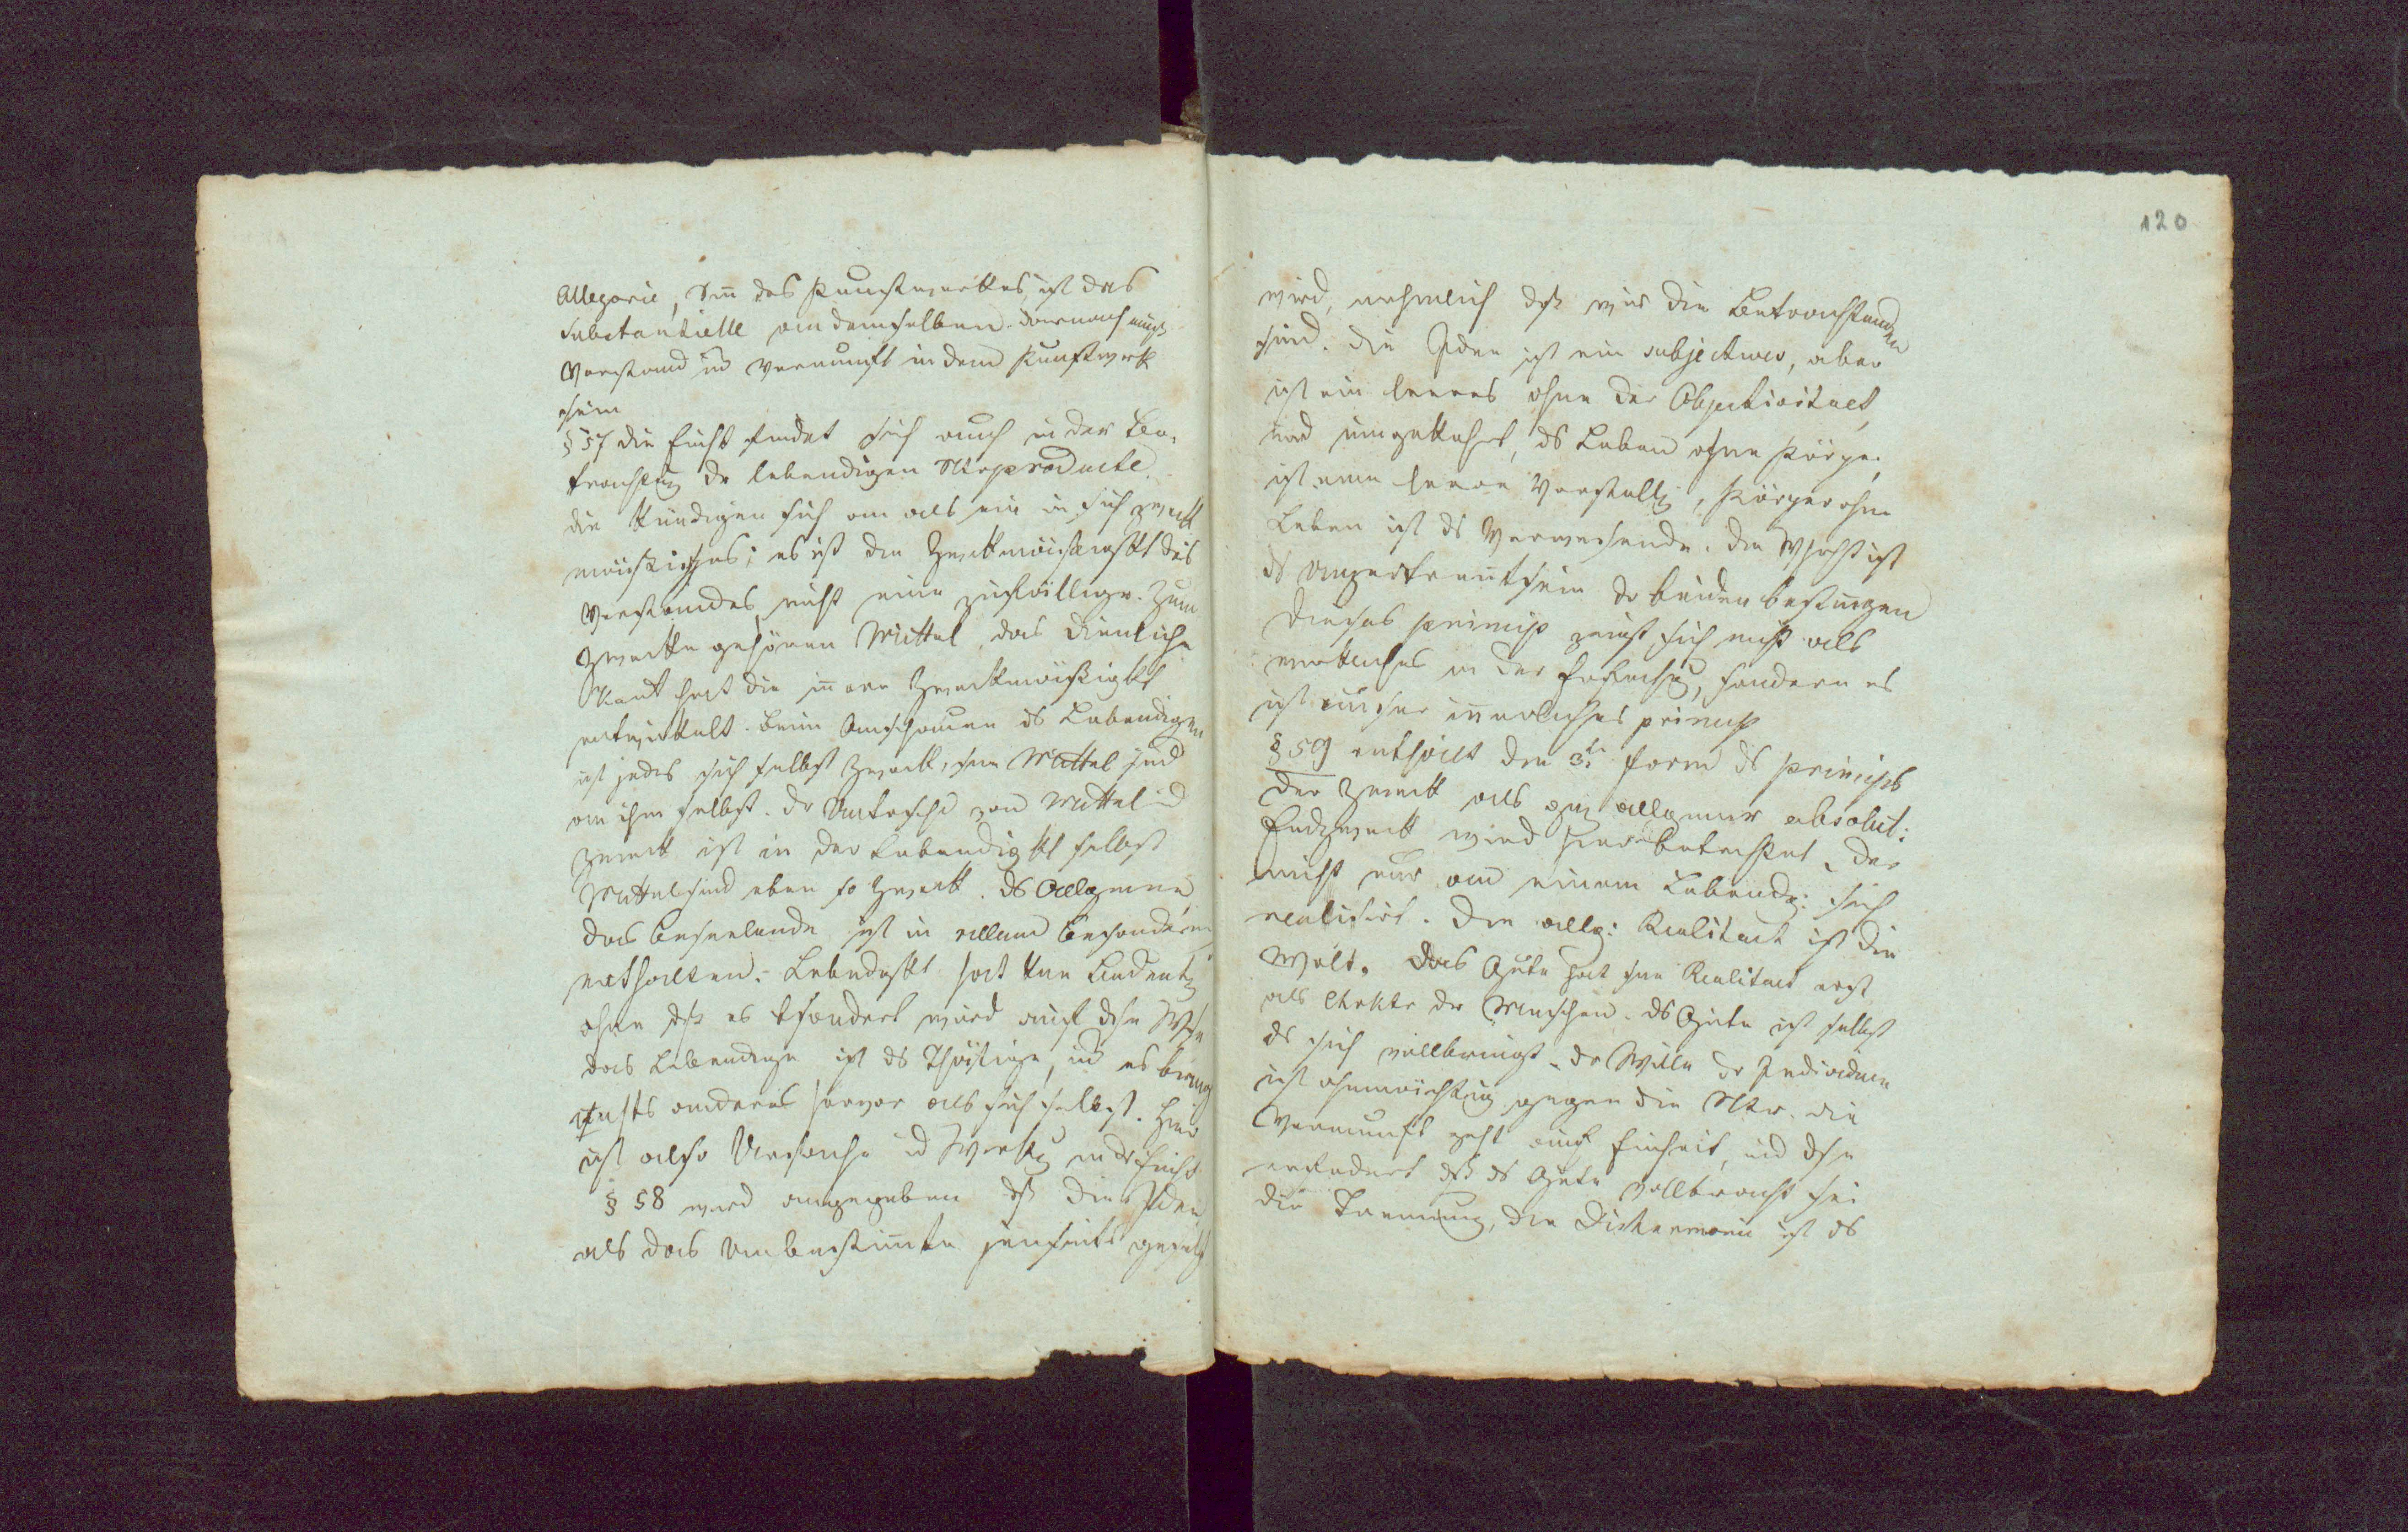 Allegorie, Sin̄ des Kunstwerkes, ist das
Substantielle an demselben. darnach muß
Verstand ud Vernunft in dem Kunstwerk
sein
§ 57 die Einht findet sich auch in der Be-
trachtung dr lebendigen Ntrproducte.
die kündigen sich an als ein in sich zweck
mäßiges; es ist die Zweckmäßigkt des
Verstandes, nicht eine zufällige. Zum
Zwecke gehören Mittel, das dienliche
Kant hat die in̄ere Zweckmäßigkt
entwickelt. Beim Anschauen ds Lebendigen
ist jedes sich selbst Zweck, sein Mittel sind
an ihm selbst. dr Untrschd von Mittel ud
Zweck ist in der Lebendigkt selbst
Mittel sind eben so Zweck. ds Allgemeine
das beseelende ist in allem Besonderen
enthalten. Lebndgkt hat keine Bedeutg
ohne dß es gesondert wird auf dse Wse
das Lebendige ist ds Thätige, ud es bringt
nichts anderes hervor als sich selbst. Hier
ist also Ursache ud Wirkg in dr Einht
§ 58 wird angegeben dß die Idee
als das Unbestim̄te jenseits gesetzt
120
wird, nehmlich dß wir die Betrachtenden
sind. die Idee ist ein subjectives, aber
ist ein leeres ohne der Objectivitaet,
und umgekehrt, ds Leben ohne Körper
ist eine leere Vorstellg, Körper ohne
Leben ist ds Verwesende. die Whrht ist
ds Ungetren̄tsein dr beiden Bestim̄gen
dieses Princip zeigt sich nicht als
wirkliches in der Erscheing, sondern es
ist unser in̄erliches princip
§ 59 enthält die 3te Form ds Princips
der Zweck als gz allgemeiner absolut:
Endzweck wird hier betrachtet, der
nicht nur an einem Lebendg: sich
realisirt. Die allg: Realitaet ist die
Welt. Das Gute hat seine Realitaet erst
als Chrktr der Menschen. ds Gute ist selbst
ds sich vollbringt. dr Wille dr Individuen
ist ohnmächtig gegen die Ntr. die
Vernunft geht auf Einheit, und dse
erfodert dß ds Gute vollbracht sei
die Trennung, die Disharmonie ist ds